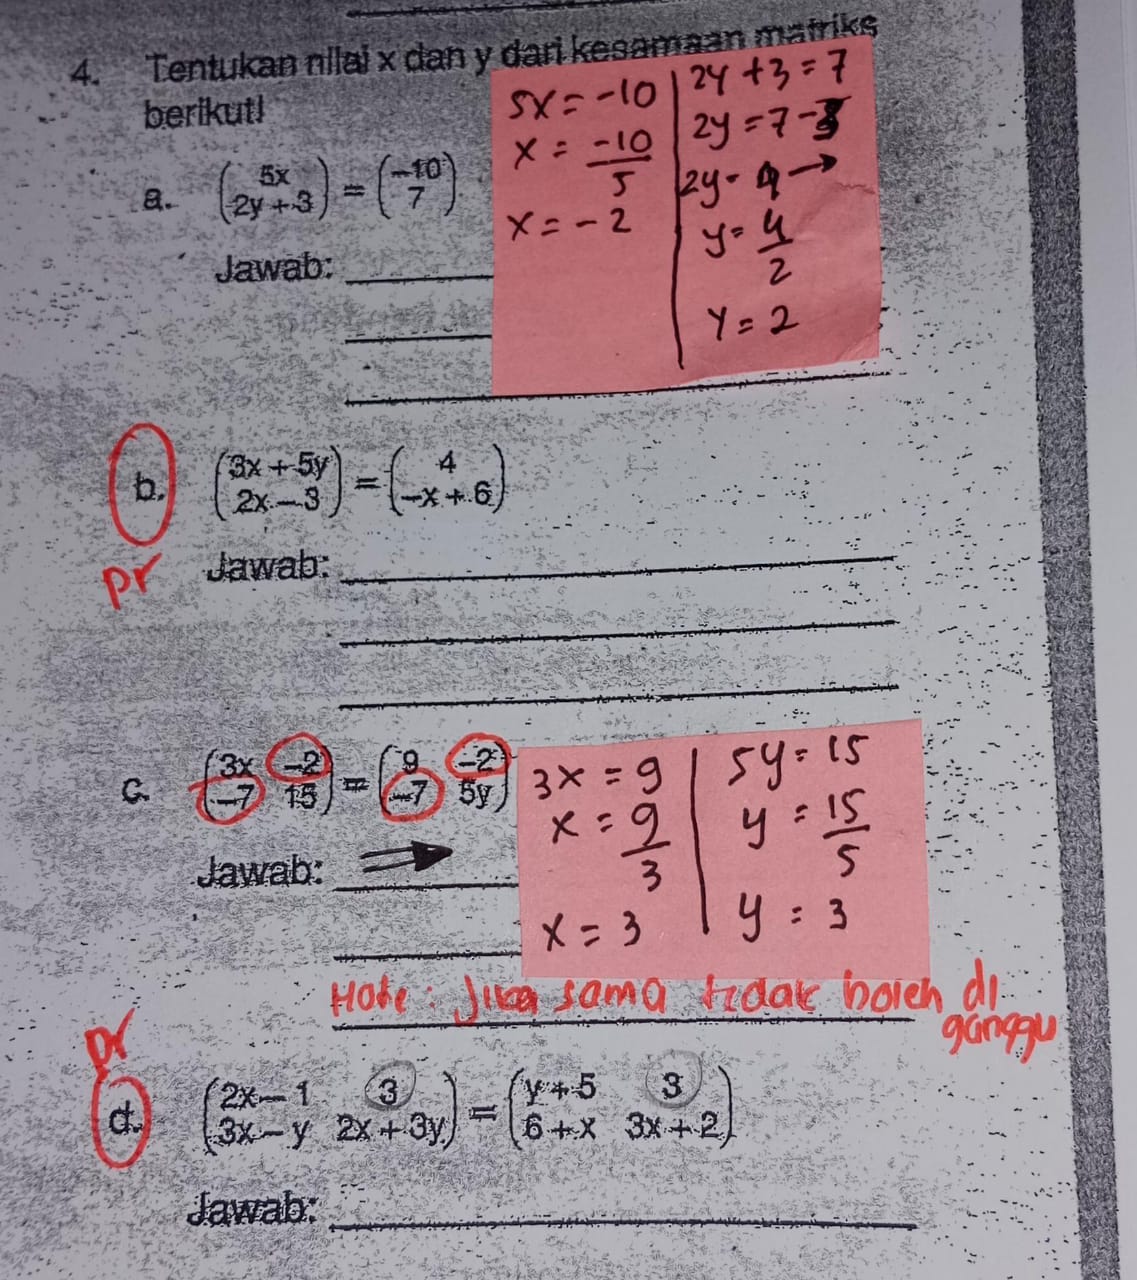 4. Tentukan nilai x dan y dari kesamaan matriks
berikut!
a. (5x
2y + 3) = (-10
7)
5x = -10
x = -10/5
x = -2
2y + 3 = 7
2y = 7 - 3
2y = 4 →
y = 4/2
y = 2
Jawab:
b. (3x + 5y
2x - 3) = (4
-x + 6)
pr
Jawab:
c. (3x -2
-7 15) = (9 -2
-7 5y)
3x = 9
x = 9/3
x = 3
5y = 15
y = 15/5
y = 3
Jawab: ⇒
Note: Jika sama tidak boleh di
ganggu
pr
d. (2x - 1 3
3x - y 2x + 3y) = (y + 5 3
6 + x 3x + 2)
Jawab: